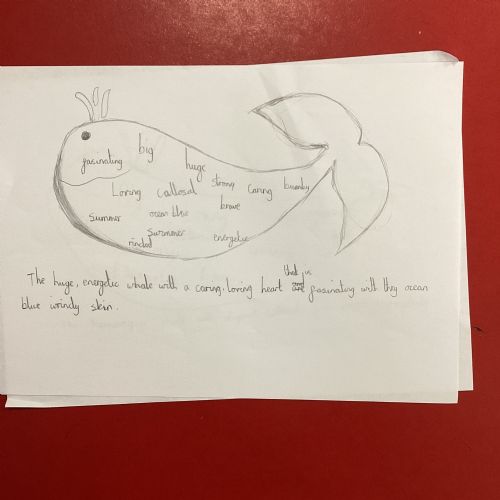 big
fasinating
huge
strong
Loving callosal caring
brave
summer ocean blue
Swimmer
energetic
that is
The huge, energetic whale with a caring, loving heart fasinating with they ocean
blue wrindy skin.